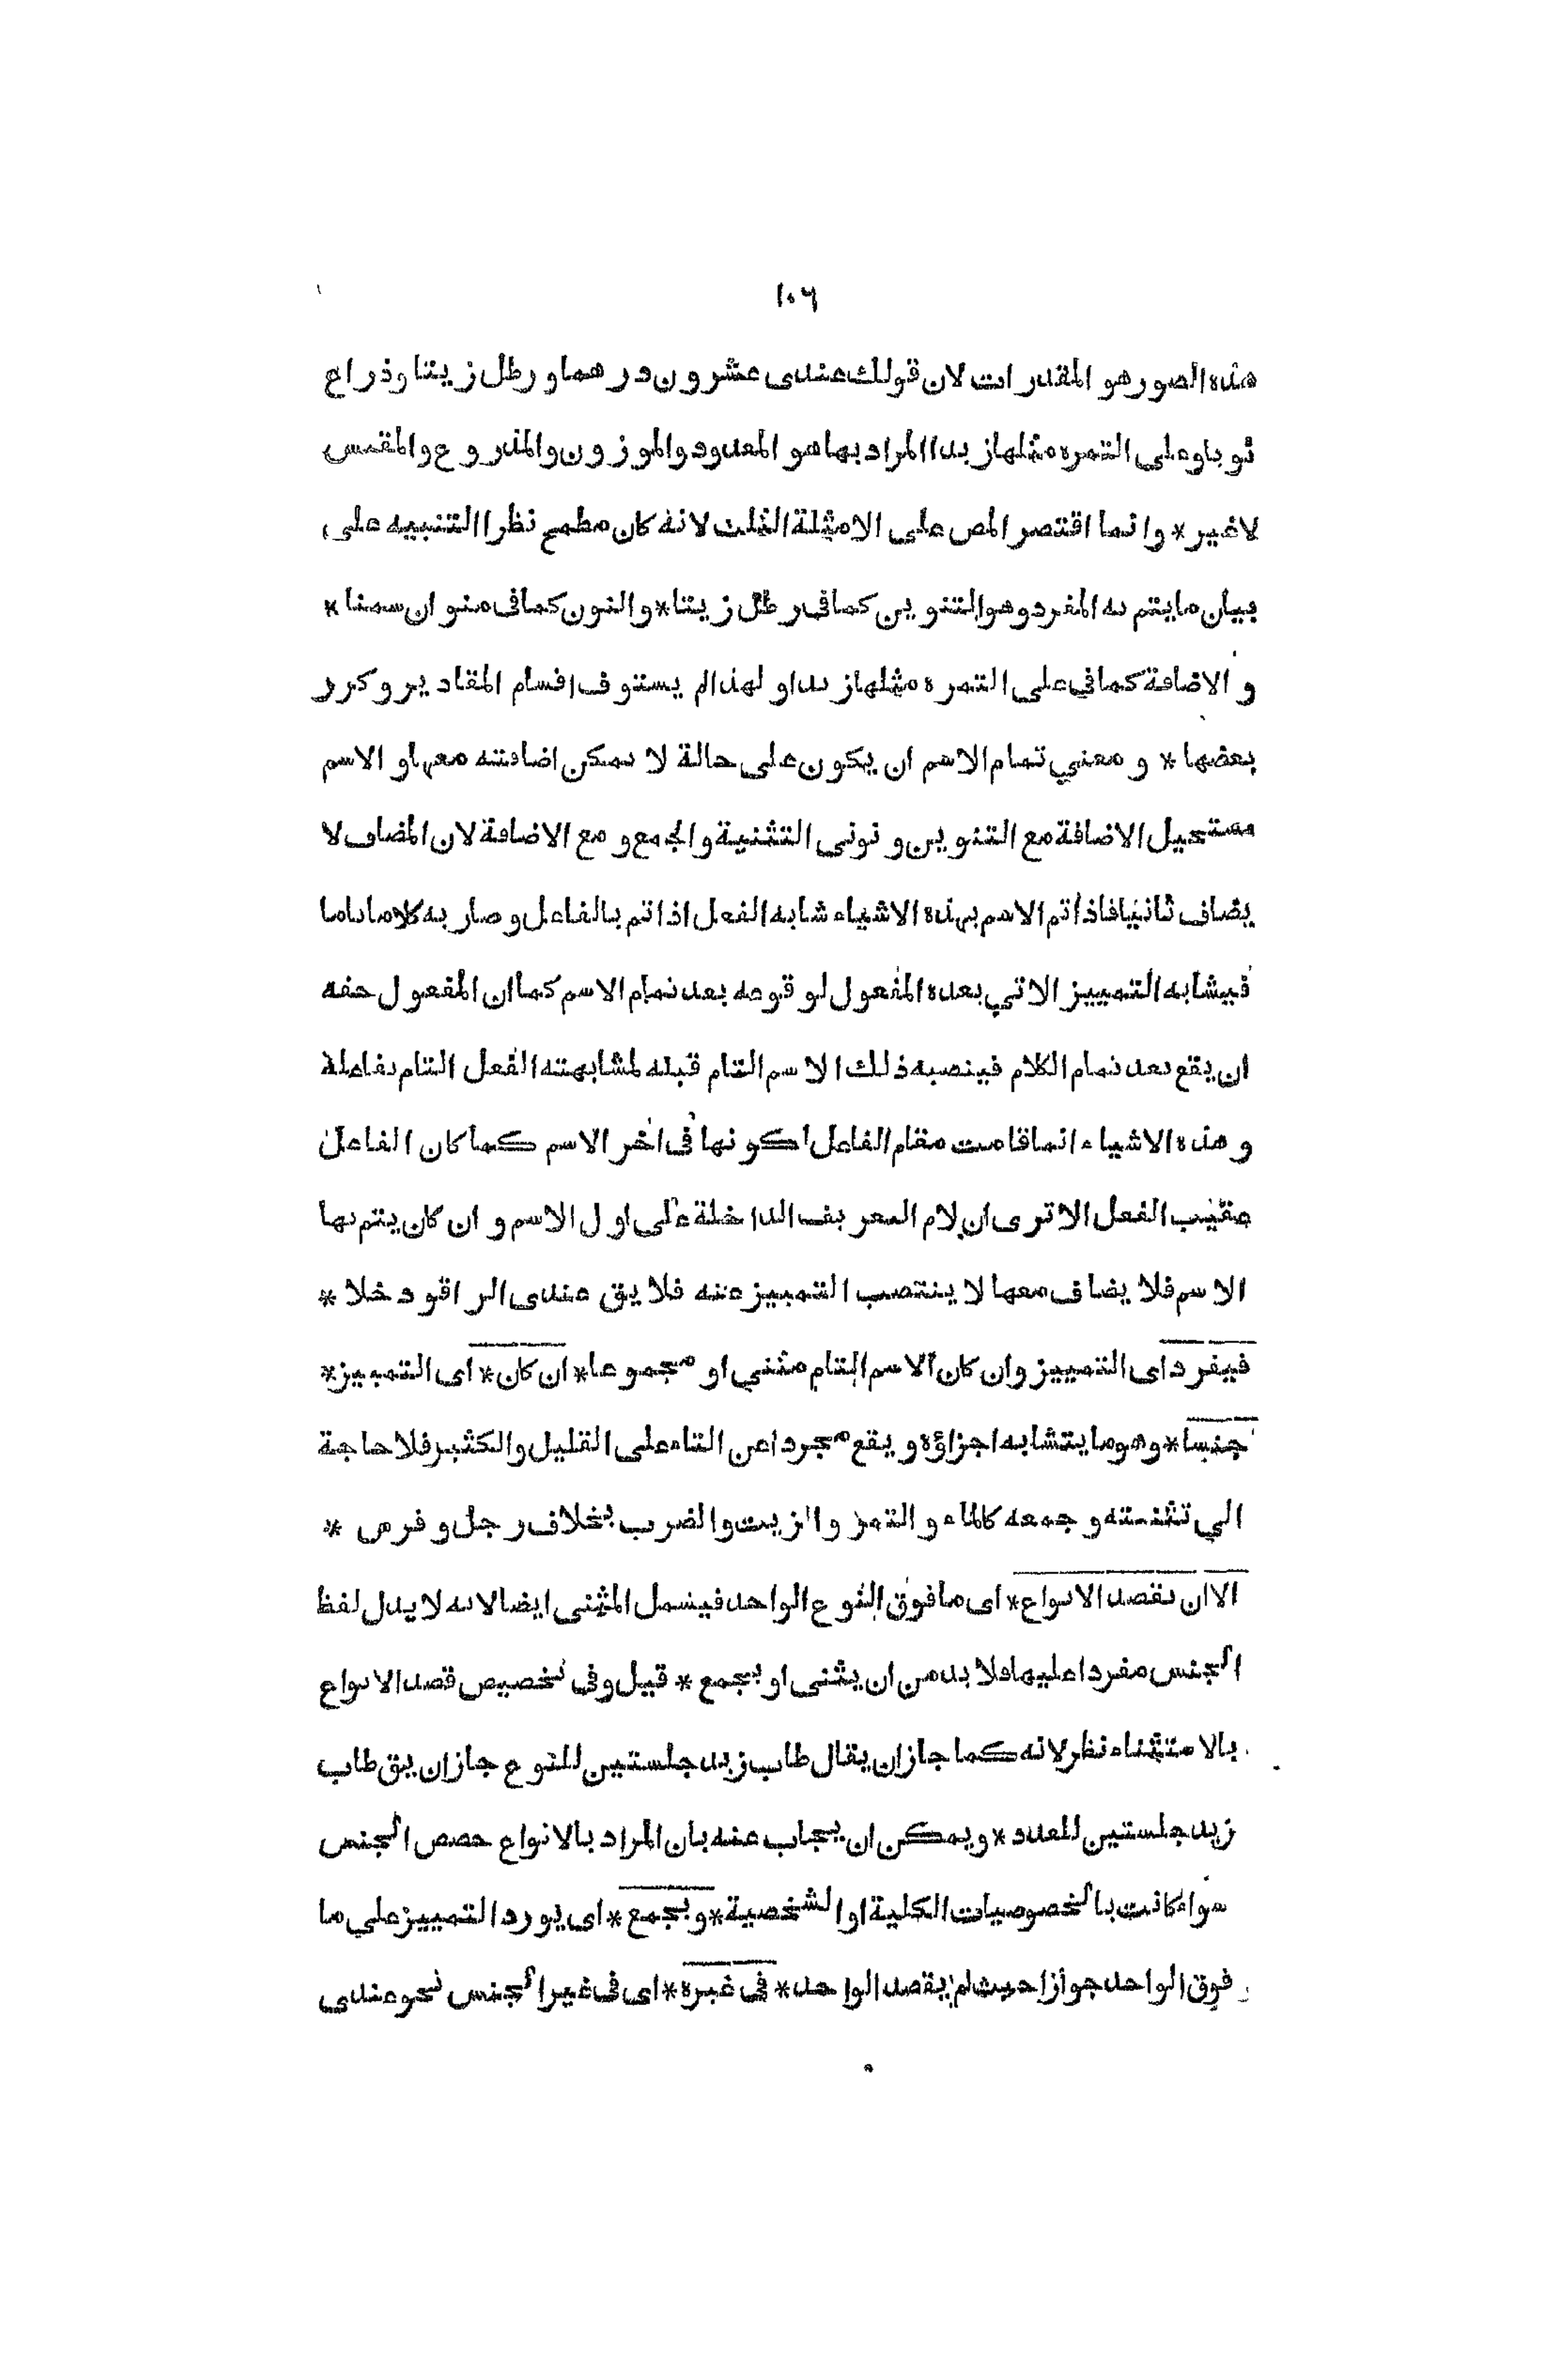 ١٠٦
هذه الصور هو المقدرات لان قولك عندى عشرون درهما ورطل زيتا وذراع
ثوبا وعلى التمرة مثلها زبدا المراد بها هو المعدود والموزون والمذروع والمقيس
لاغير * وانما اقتصر المص على الامثلة الثلث لانه كان مطمح نظره التنبيه على
بيان ما يتم به المفرد وهو التنوين كما فى رطل زيتا * والنون كما فى منوان سمنا *
و الاضافة كما في على التمرة مثلها زبدا و لهذا لم يستوف اقسام المقادير و كرر
بعضها * و معني تمام الاسم ان يكون على حالة لا يمكن اضافته معها و الاسم
مستحيل الاضافة مع التنوين و نونى التثنية و الجمع و مع الاضافة لان المضاف لا
يضاف ثانيا فاذا تم الاسم بهذه الاشياء شابه الفعل اذا تم بالفاعل و صار به كلاما تاما
فيشابه التمييز الاتي بعده المفعول لوقوعه بعد تمام الاسم كما ان المفعول حقه
ان يقع بعد تمام الكلام فينصبه ذلك الاسم التام قبله لمشابهته الفعل التام بفاعله
و هذه الاشياء انما قامت مقام الفاعل لكونها فى اخر الاسم كما كان الفاعل
عقيب الفعل الا ترى ان لام التعريف الداخلة على اول الاسم و ان كان يتم بها
الاسم فلا يضاف معها لا ينتصب التمييز عنه فلا يق عندى الراقود خلا *
فيفرد اى التمييز وان كان الاسم التام مثني او مجموعا * ان كان * اى التمييز *
جنسا * وهو ما يتشابه اجزاؤه و يقع مجردا عن التاء على القليل والكثير فلا حاجة
الي تثنيته و جمعه كالماء و التمر و الزيت و الضرب بخلاف رجل و فرس *
الا ان يقصد الانواع * اى ما فوق النوع الواحد فيشمل المثنى ايضا لانه لا يدل لفظ
الجنس مفردا عليها فلا بد من ان يثنى او يجمع * قيل و فى تخصيص قصد الانواع
بالاستثناء نظر لانه كما جاز ان يقال طاب زيد جلستين للنوع جاز ان يق طاب
زيد جلستين للعدد * و يمكن ان يجاب عنه بان المراد بالانواع حصص الجنس
سواء كانت بالخصوصيات الكلية او الشخصية * و يجمع * اى يورد التمييز علي ما
فوق الواحد جوازا حيث لم يقصد الواحد * فى غيره * اى فى غير الجنس نحو عندى